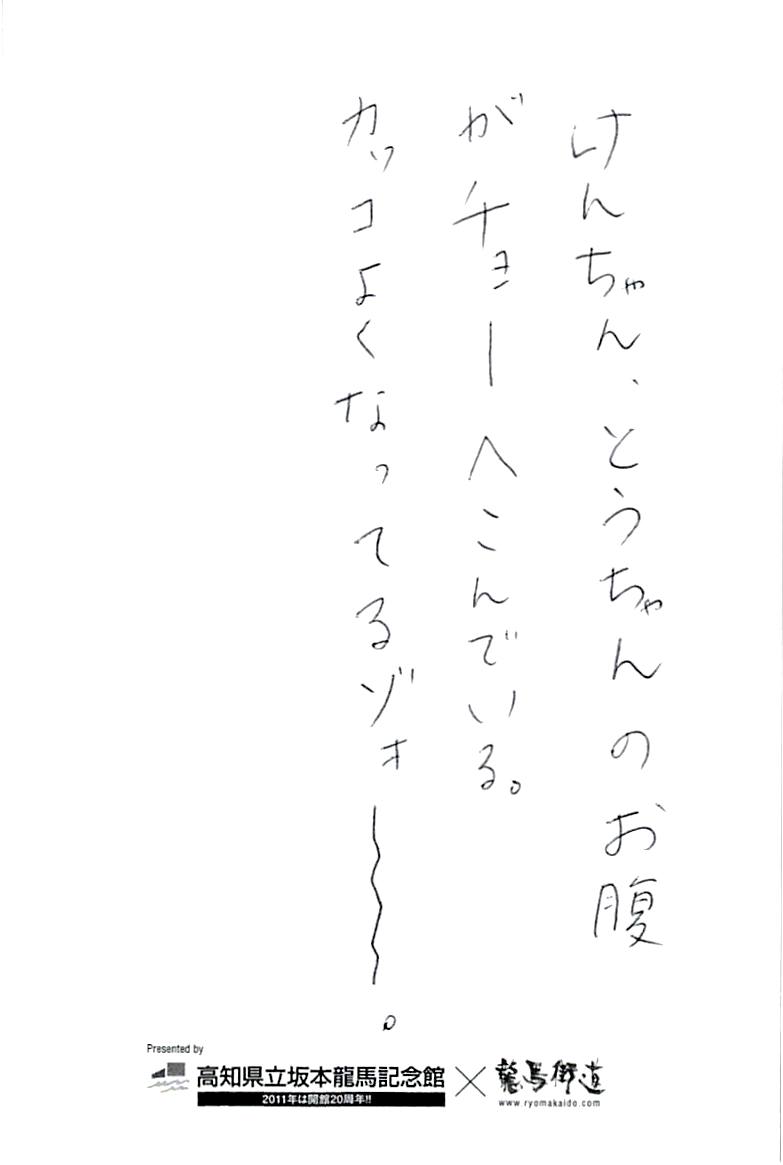 けんちゃん、とうちゃんのお腹
がチョーへこんでいる。
カッコよくなってるゾォ〜。
Presented by
高知県立坂本龍馬記念館
2011年は開館20周年!!
×
龍馬街道
www.ryomakaido.com